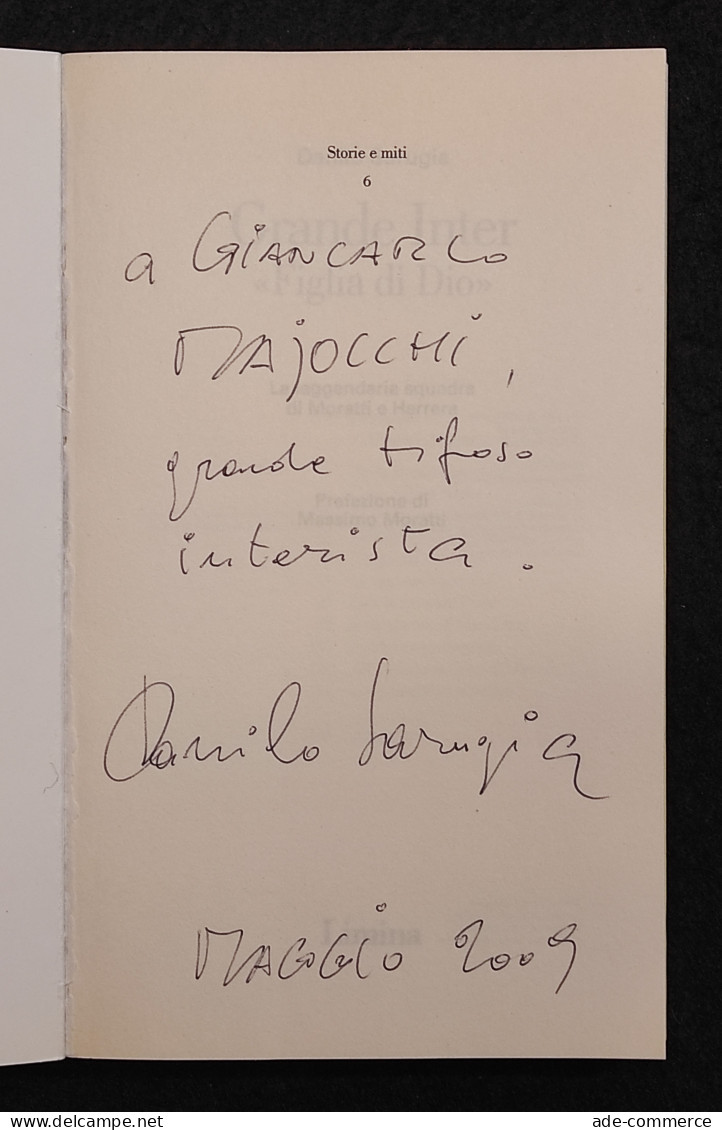 Storie e miti
6
a GIANCARLO
MAJOCCHI,
grande tifoso
interista.
Danilo Sarugia
MAGGIO 2009
Grande Inter
«Figlia di Dio»
La leggendaria squadra
di Moratti e Herrera
Prefazione di
Massimo Moratti
Limina
www.delcampe.net
ade-commerce